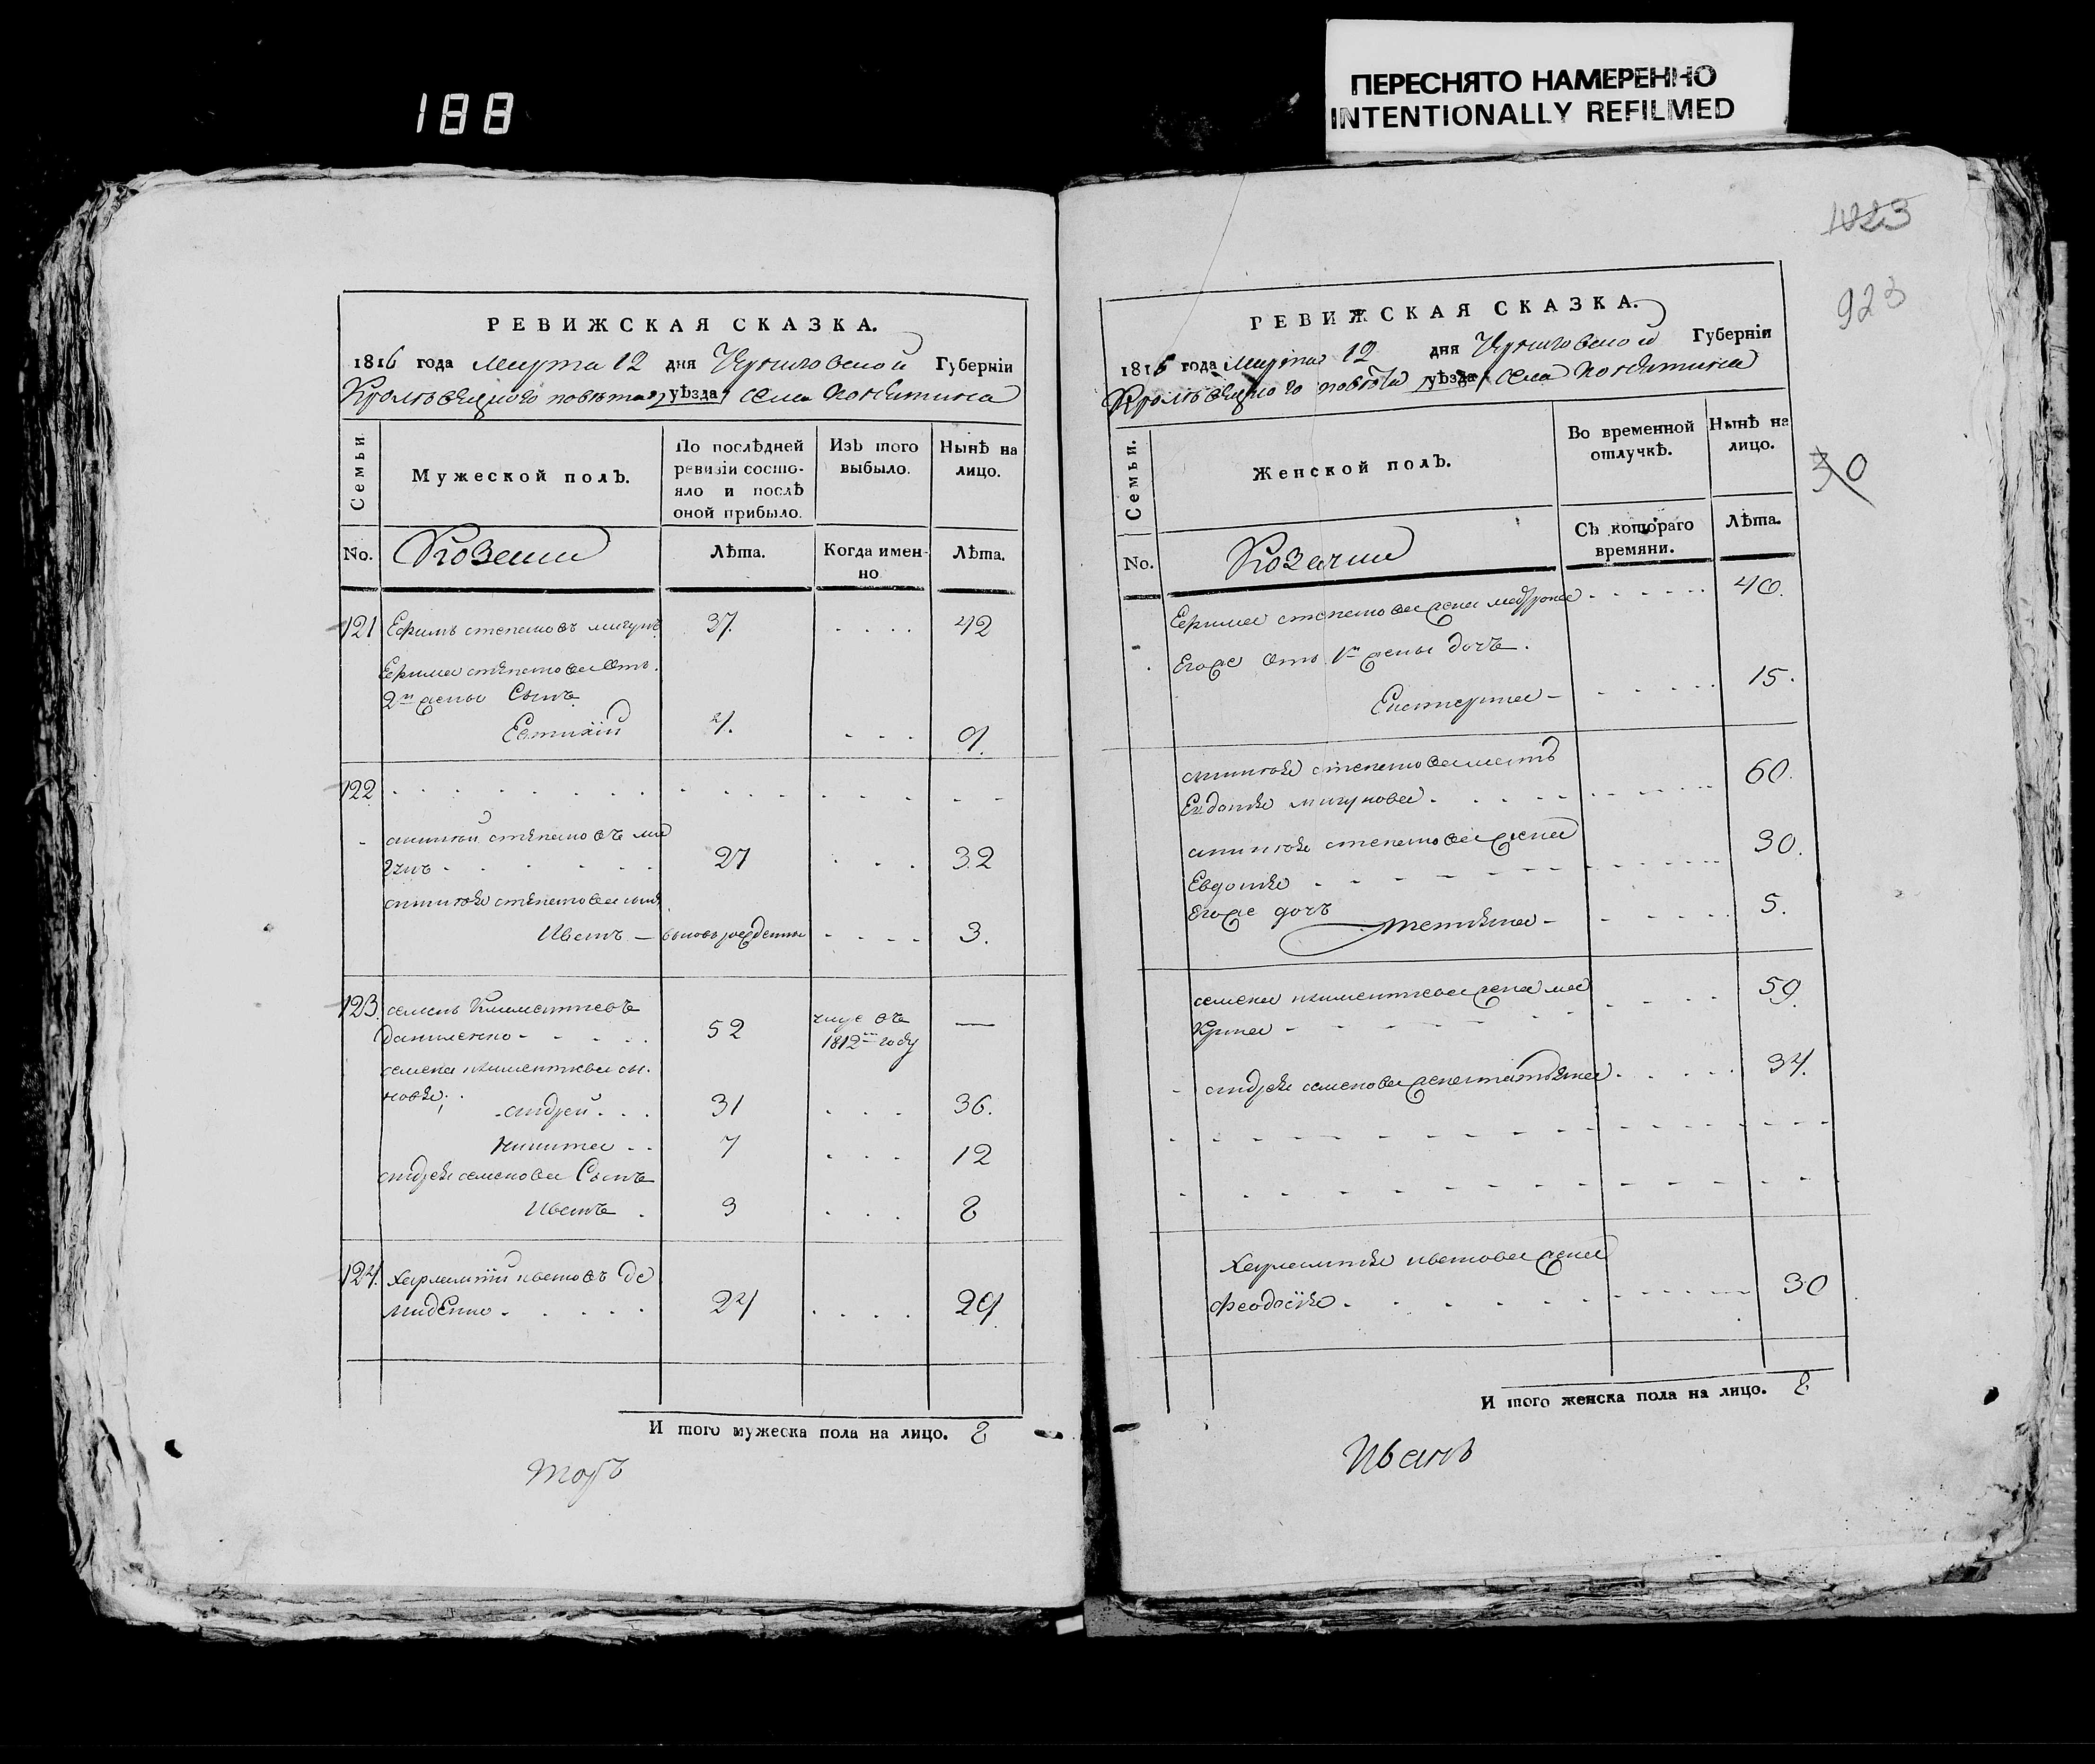 188
ПЕРЕСНЯТО НАМЕРЕННО
INTENTIONALLY REFILMED
РЕВИЖСКАЯ СКАЗКА.
1816 года Марта 12 дня Черниговской Губерніи
Кролевецкого повѣта уѣзда села
Семьи
Мужеской полъ.
По послѣдней
ревизіи состо-
яло и послѣ
оной прибыло.
Изъ того
выбыло.
Нынѣ на
лицо.
No.
Козаки
Лѣта.
Когда имен-
но
Лѣта.
121 Ефимъ степановъ мигунъ 37. 42
Ефима степанова отъ
2й жены Сынъ
Евтихій 4. 9.
122
никита степановъ ми
гунъ 27 32
степанова сынъ
Иванъ – вновь рожденны 3.
123. семенъ Климентиевъ
Даниленко 52 1812м году —
семена климентиева сы-
новья;
андрей 31 36.
никита 7 12
андрея семенова Сынъ
Иванъ 3 8
124. Харлампій ивановъ де
миденко 24 29
И того мужеска пола на лицо. 8
1023
923
РЕВИЖСКАЯ СКАЗКА.
1816 года Марта 12 дня Черниговской Губерніи
Кролевецкого повѣта уѣзда села
Семьи.
Женской полъ.
Во временной
отлучкѣ.
Нынѣ на
лицо.
30
No.
Козачки
Съ котораго
времяни.
Лѣта.
Ефима степанова жена 40.
Егоже отъ 1й жены дочь.
Екатерина – 15.
степанова мать
Евдокія мигунова 60.
степанова жена
Евдокія 30.
Егоже дочь
Татіяна – 5.
семена климентиева жена ма
крина 59.
андрея семенова жена татіяна 34.
Харлампія иванова жена
Феодосія 30
И того женска пола на лицо. 8
Иванъ